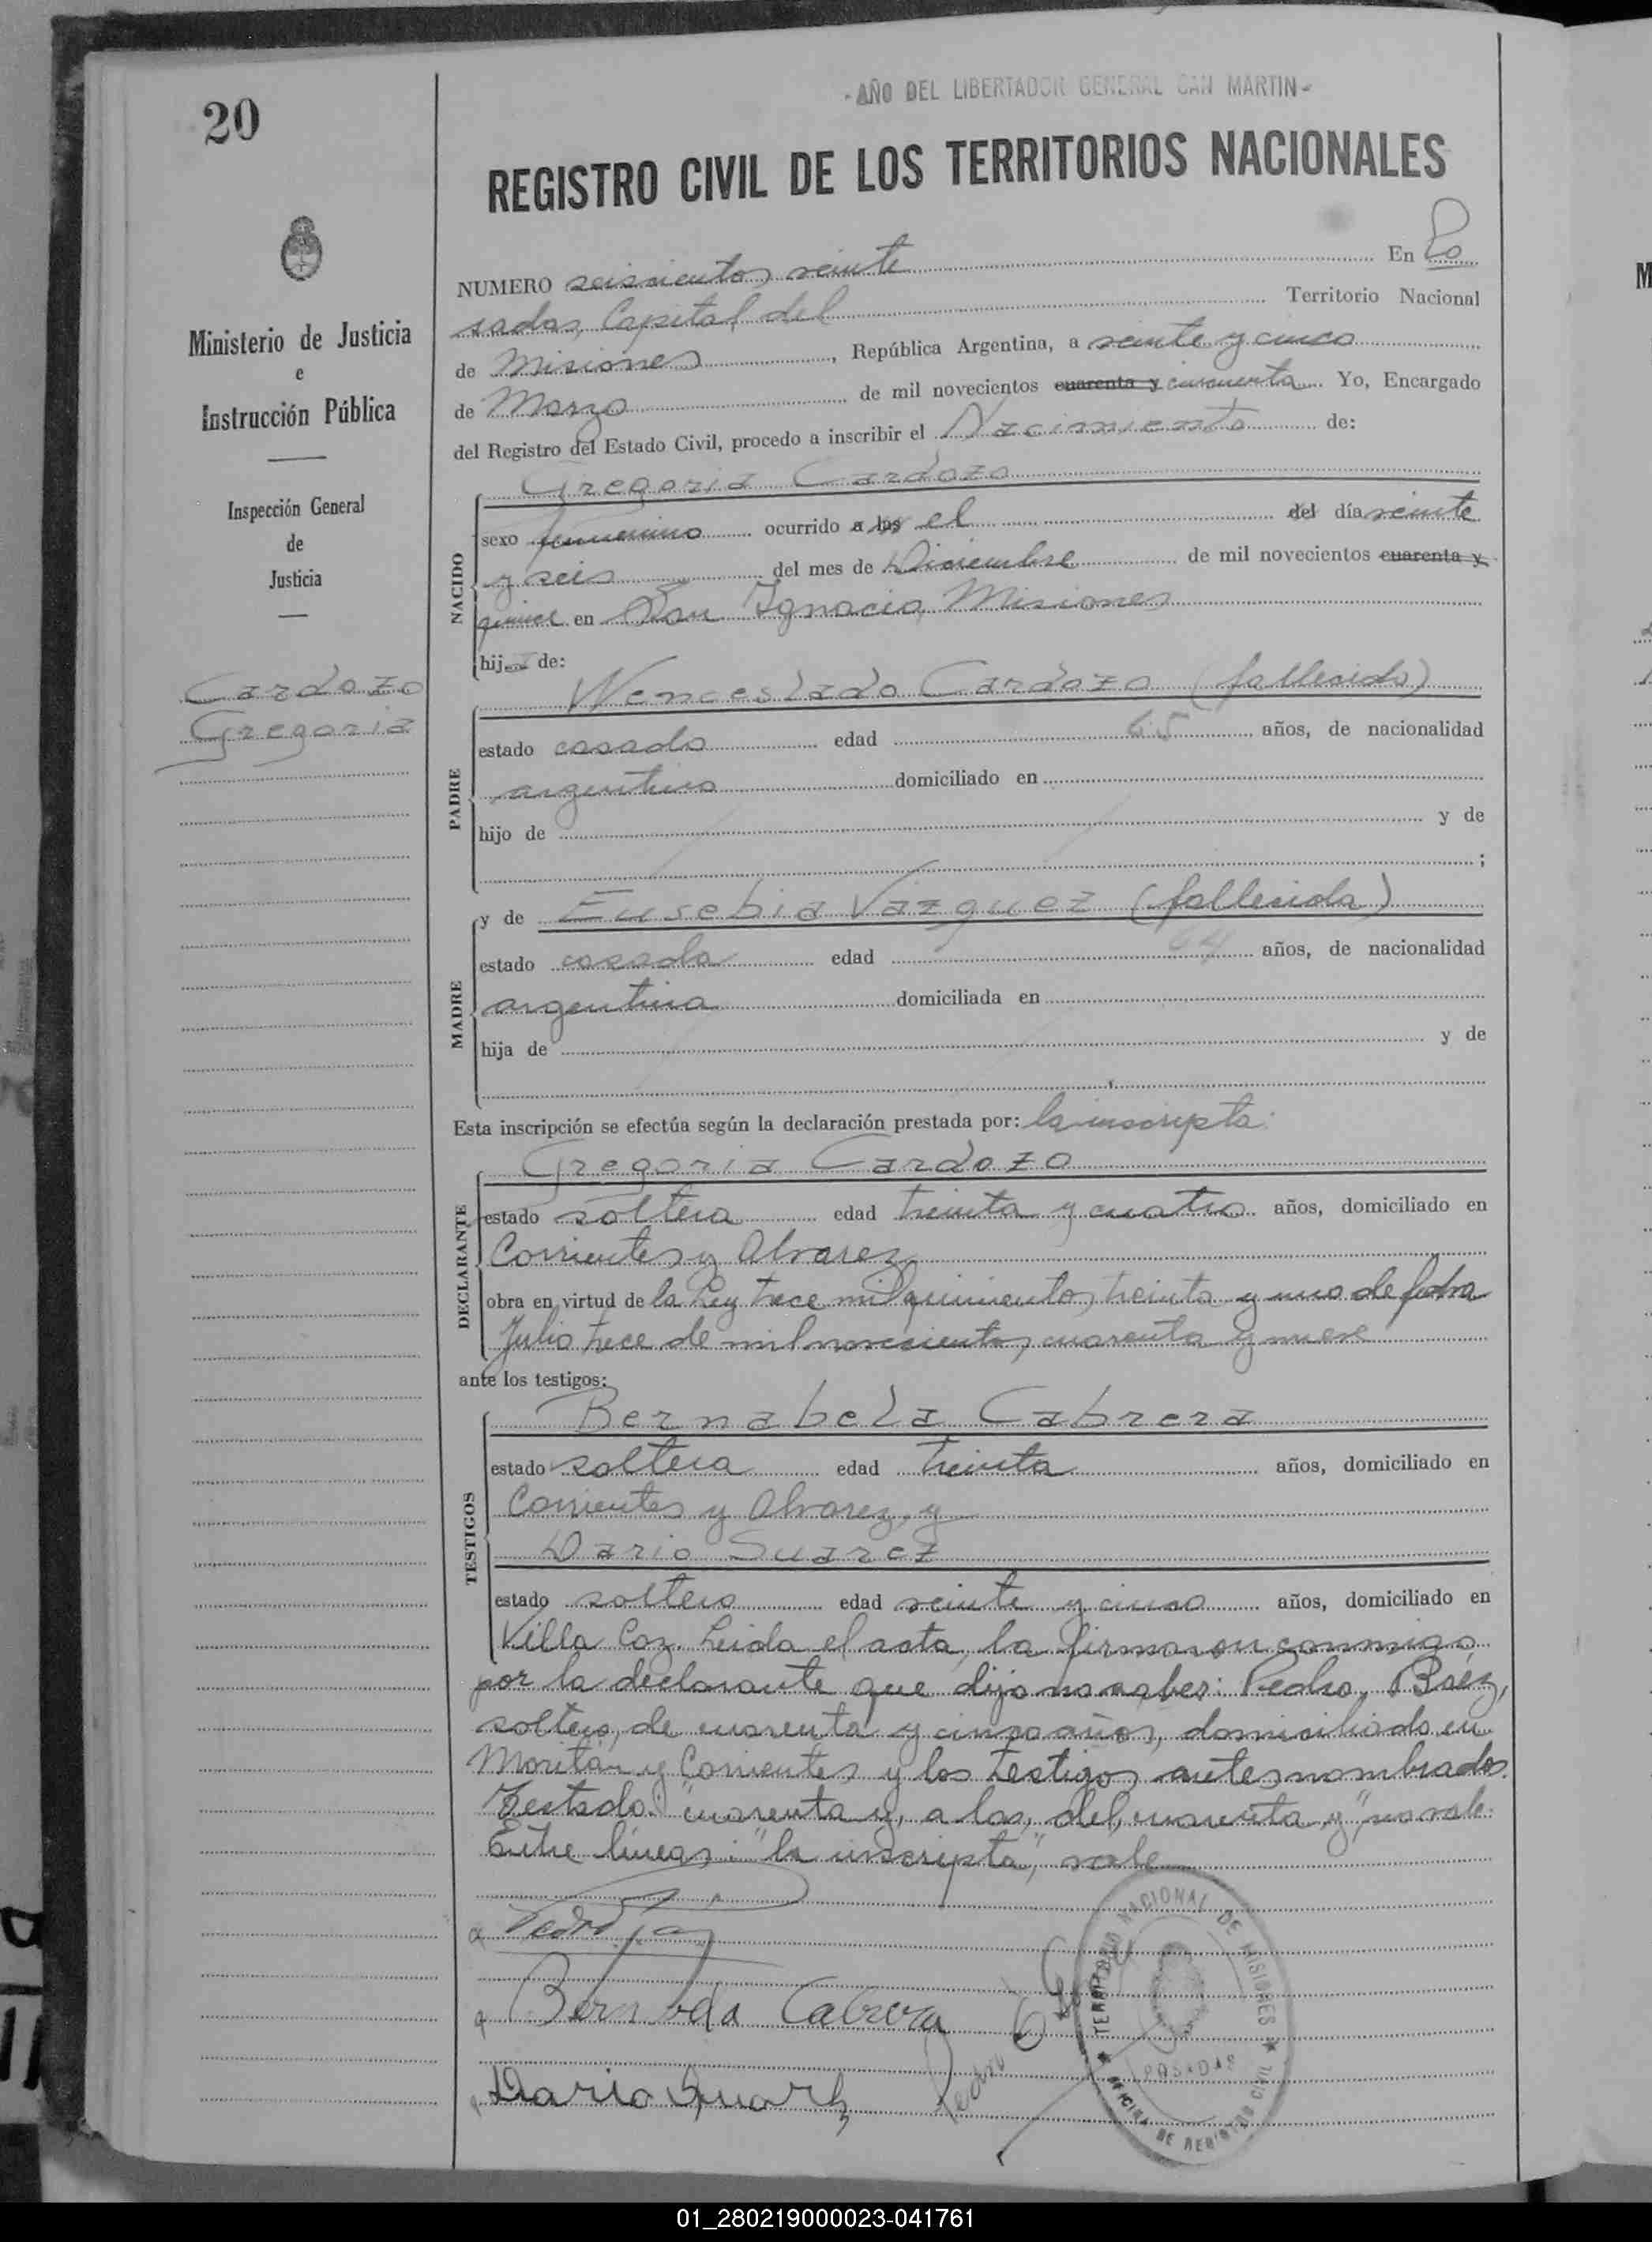 20
- AÑO DEL LIBERTADOR GENERAL SAN MARTIN -
REGISTRO CIVIL DE LOS TERRITORIOS NACIONALES
Ministerio de Justicia
e
Instrucción Pública
Inspección General
de
Justicia
Cardozo
Gregoria
NUMERO seiscientos veinte En Po
sadas, Capital del Territorio Nacional
de Misiones, República Argentina, a veinte y cinco
de Marzo de mil novecientos cuarenta y cincuenta Yo, Encargado
del Registro del Estado Civil, procedo a inscribir el Nacimiento de:
Gregoria Cardozo
NACIDO
sexo femenino ocurrido a las el del día veinte
y seis del mes de Diciembre de mil novecientos cuarenta y
quince en San Ignacio, Misiones
hija de:
Wenceslado Cardozo (fallecido)
PADRE
estado casado edad 65 años, de nacionalidad
argentino domiciliado en
hijo de y de
;
MADRE
y de Eusebia Vazquez (fallecida)
estado casada edad 64 años, de nacionalidad
argentina domiciliada en
hija de y de
Esta inscripción se efectúa según la declaración prestada por: la inscripta:
Gregoria Cardozo
DECLARANTE
estado soltera edad treinta y cuatro años, domiciliado en
Corrientes y Alvarez
obra en virtud de la Ley trece mil quinientos treinta y uno de fecha
Julio trece de mil novecientos cuarenta y nueve
ante los testigos:
Bernabela Cabrera
TESTIGOS
estado soltera edad treinta años, domiciliado en
Corrientes y Alvarez, y
Dario Suarez
estado soltero edad veinte y cinco años, domiciliado en
Villa Leida el acta, la firmaron conmigo
por la declarante que dijo no saber: Pedro Baéz,
soltero, de cuarenta y cinco años, domiciliado en
Moritán y Corrientes y los testigos antes nombrados.
Testado: "cuarenta y, a las, del, cuarenta y", no vale.
Entre líneas: "la inscripta", vale
Bernabela Cabrera
Dario Suarez
TERRITORIO NACIONAL DE MISIONES
POSADAS
OFICINA DE REGISTRO CIVIL
01_280219000023-041761